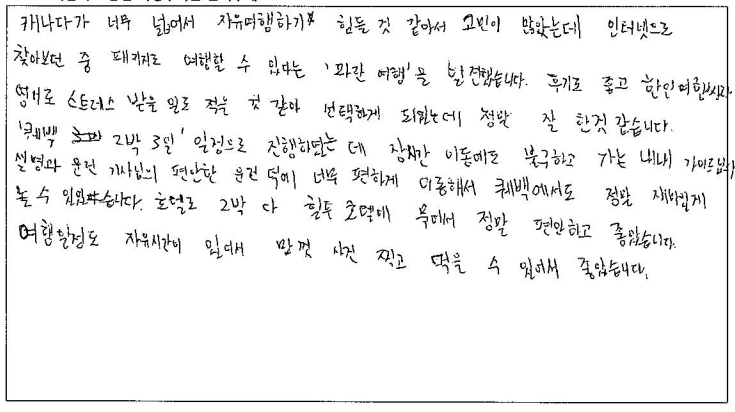 캐나다가 너무 넓어서 자유여행하기 힘들 것 같아서 고민이 많았는데 인터넷으로
찾아보던 중 패키지로 여행할 수 있다는 '파란 여행'을 발견했습니다. 후기도 좋고 한인여행사라
영어로 스트레스 받을 일도 적을 것 같아 선택하게 되었는데 정말 잘 한것 같습니다.
'퀘백 2박 3일' 일정으로 진행하였는 데 장시간 이동에도 불구하고 가는 내내 가이드님의
설명과 운전 기사님의 편안한 운전 덕에 너무 편하게 이동해서 퀘백에서도 정말 재미있게
놀 수 있었습니다. 호텔도 2박 다 힐튼 호텔에 묵어서 정말 편안하고 좋았습니다.
여행일정도 자유시간이 있어서 맘껏 사진 찍고 먹을 수 있어서 좋았습니다.